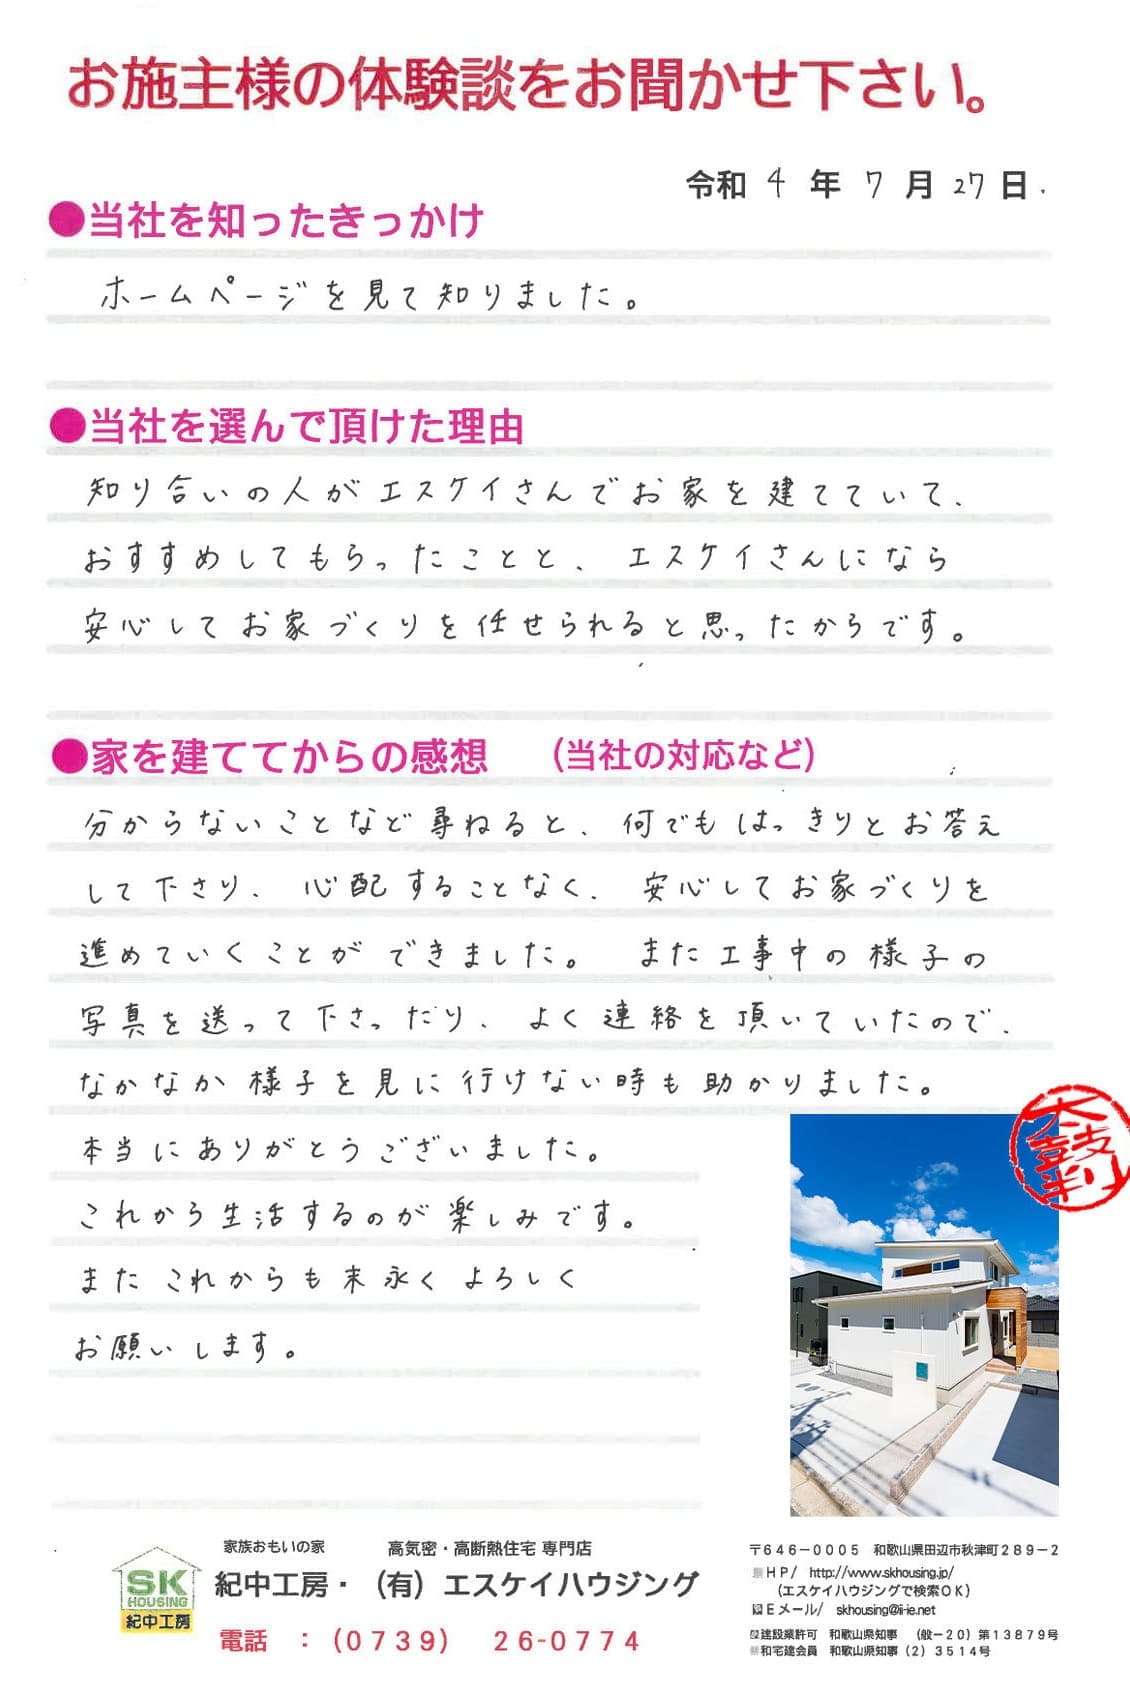 お施主様の体験談をお聞かせ下さい。
令和 4 年 7 月 27 日
●当社を知ったきっかけ
ホームページを見て知りました。
●当社を選んで頂けた理由
知り合いの人がエスケイさんでお家を建てていて、
おすすめしてもらったことと、エスケイさんになら
安心してお家づくりを任せられると思ったからです。
●家を建ててからの感想 （当社の対応など）
分からないことなど尋ねると、何でもはっきりとお答え
して下さり、心配することなく、安心してお家づくりを
進めていくことができました。また工事中の様子の
写真を送って下さったり、よく連絡を頂いていたので、
なかなか様子を見に行けない時も助かりました。
本当にありがとうございました。
これから生活するのが楽しみです。
またこれからも末永くよろしく
お願いします。
太鼓判
家族おもいの家 高気密・高断熱住宅 専門店
SK
HOUSING
紀中工房
紀中工房・（有）エスケイハウジング
電話 ：（０７３９） ２６-０７７４
〒６４６－０００５ 和歌山県田辺市秋津町２８９－２
ＨＰ/ http://www.skhousing.jp/
（エスケイハウジングで検索ＯＫ）
Ｅメール/ skhousing@ii-ie.net
建設業許可 和歌山県知事 （般－20）第１３８７９号
和宅建会員 和歌山県知事（２）３５１４号